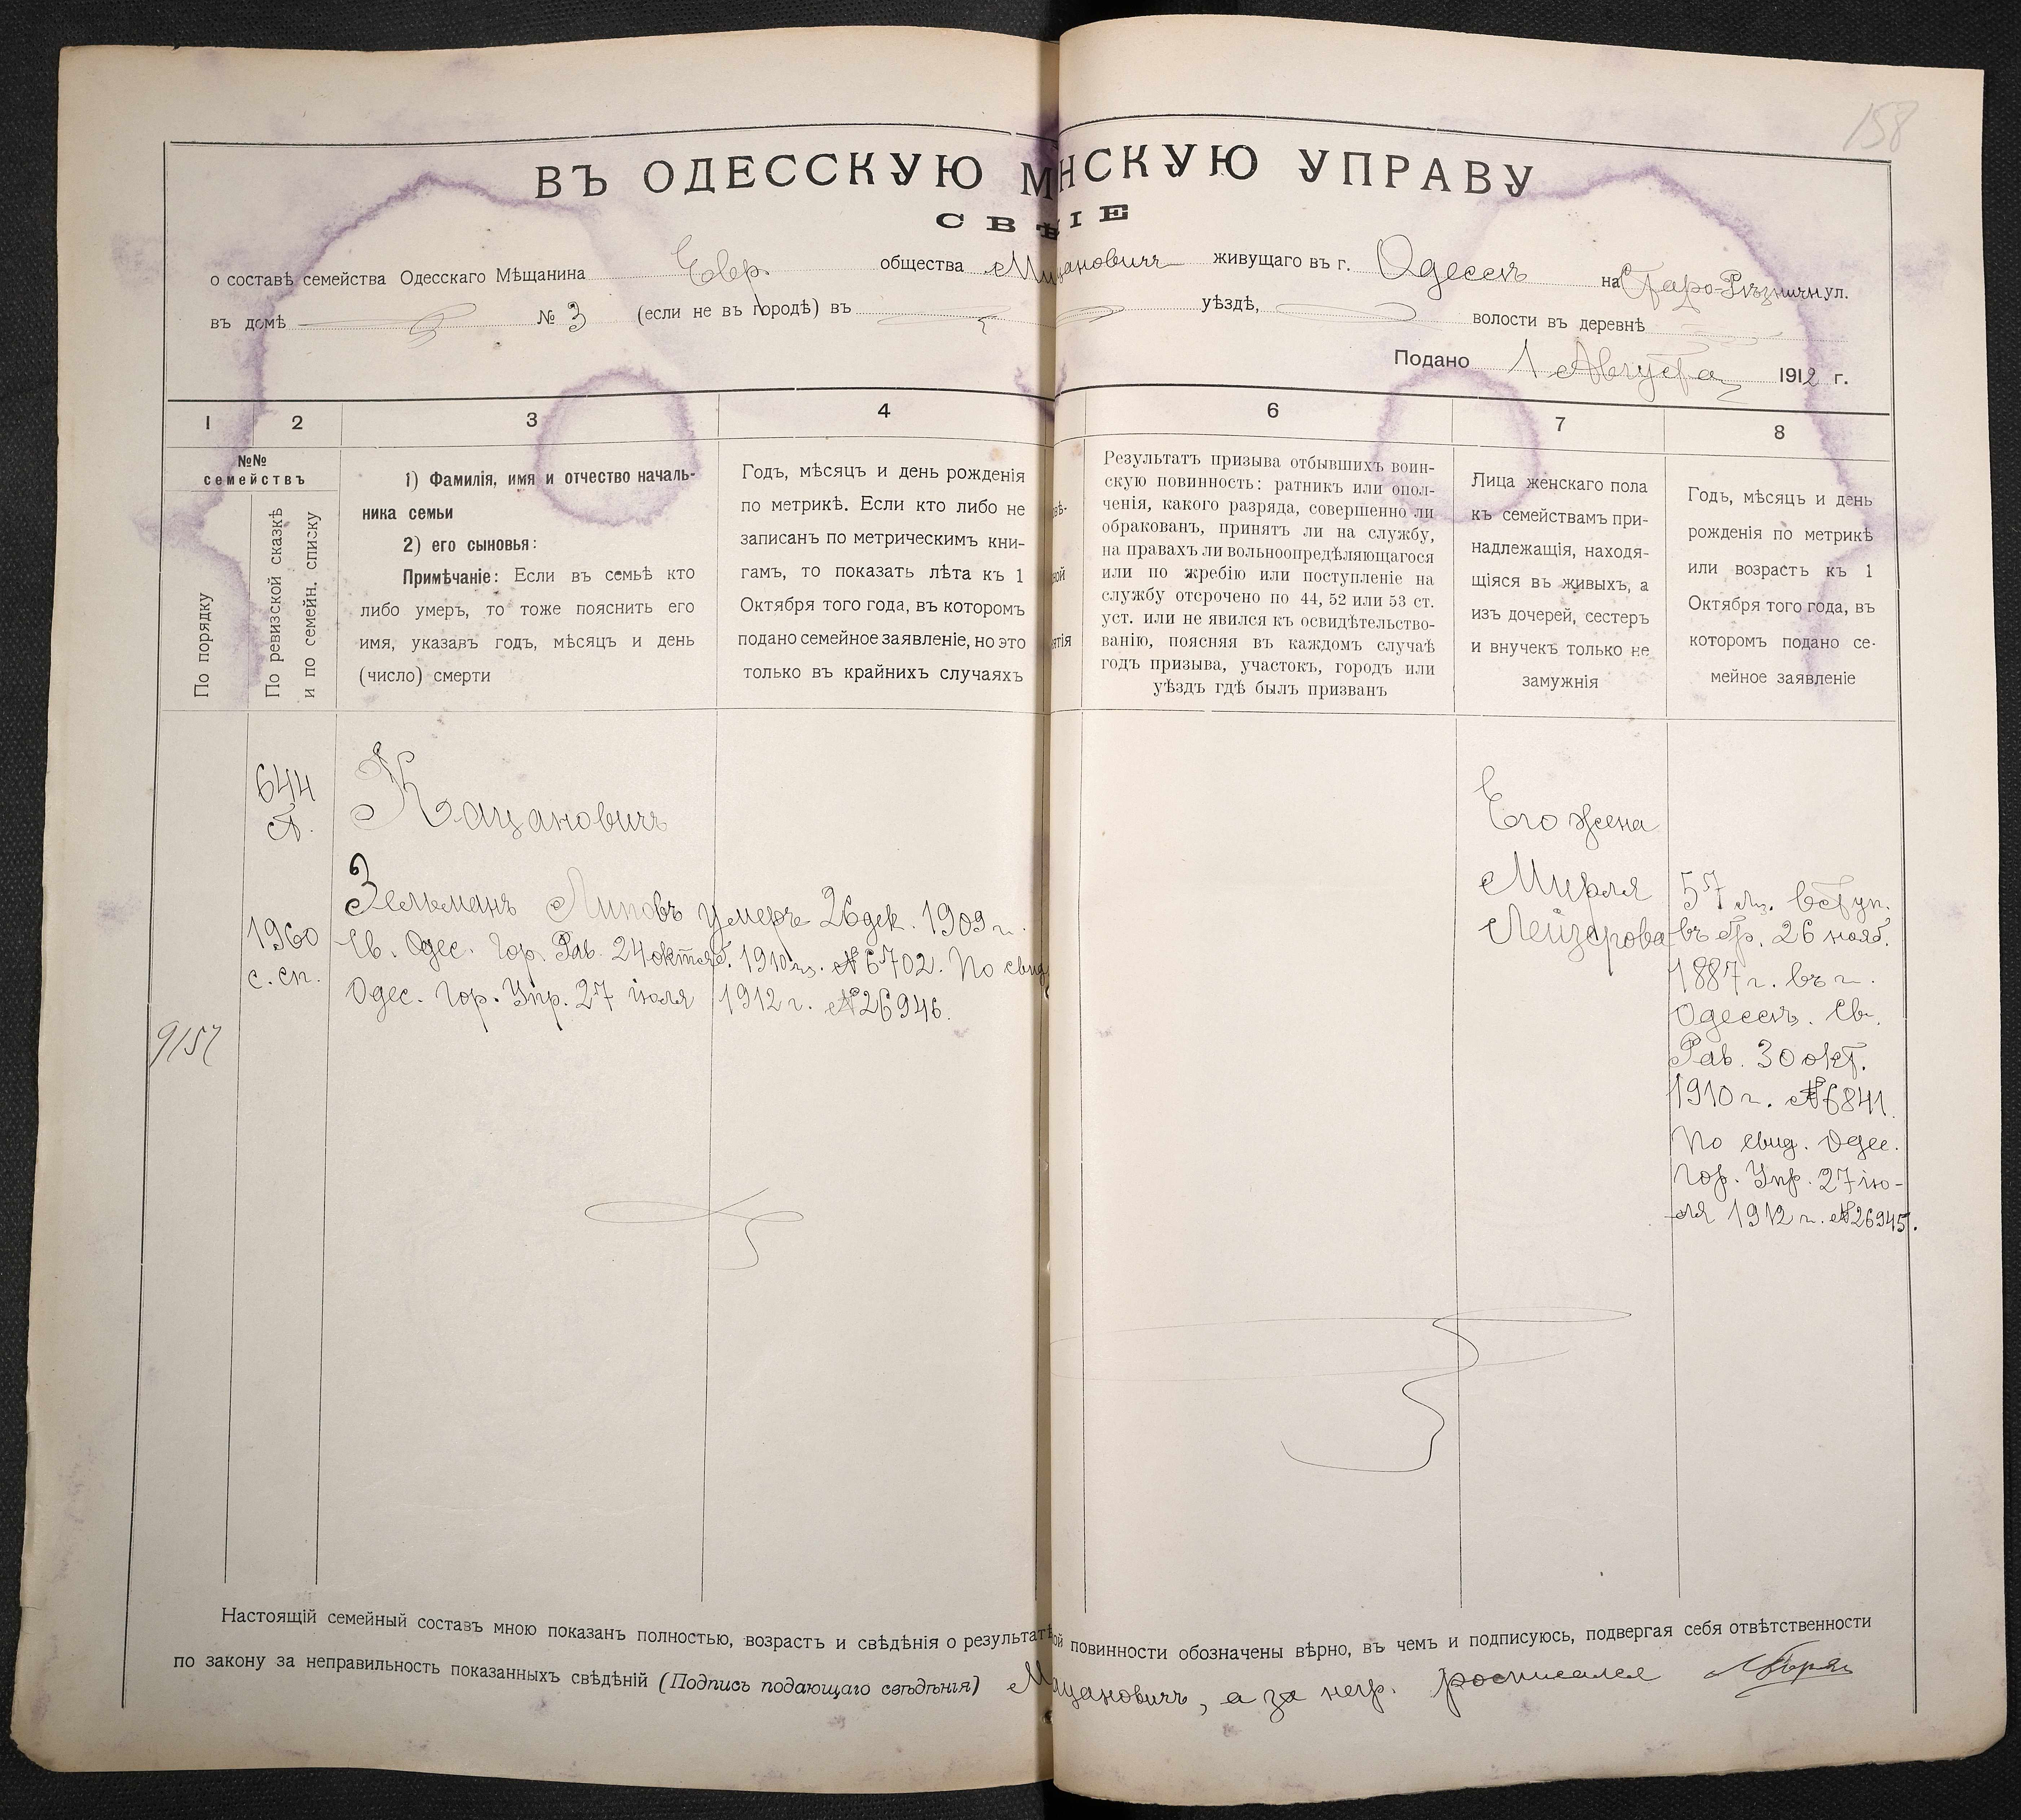 158
ВЪ ОДЕССКУЮ М НСКУЮ УПРАВУ
СВѢ ІЕ
о составѣ семейства Одесскаго Мѣщанина Евр. общества Ми цановичъ живущаго въ г. Одессѣ на Старо-Рѣзничн ул.
въ домѣ № 3 (если не въ городѣ) въ уѣздѣ, волости въ деревнѣ
Подано 1 Августа 1912 г.
1 2 3 4 6 7 8
№№ семействъ
По порядку
По ревизской сказкѣ
и по семейн. списку
1) Фамилія, имя и отчество началь-
ника семьи
2) его сыновья:
Примѣчаніе: Если въ семьѣ кто
либо умеръ, то тоже пояснить его
имя, указавъ годъ, мѣсяцъ и день
(число) смерти
Годъ, мѣсяцъ и день рожденія
по метрикѣ. Если кто либо не
записанъ по метрическимъ кни-
гамъ, то показать лѣта къ 1
Октября того года, въ которомъ
подано семейное заявленіе, но это
только въ крайнихъ случаяхъ
Результатъ призыва отбывшихъ воин-
скую повинность: ратникъ или опол-
ченія, какого разряда, совершенно ли
обракованъ, принятъ ли на службу,
на правахъ ли вольноопредѣляющагося
или по жребію или поступленіе на
службу отсрочено по 44, 52 или 53 ст.
уст. или не явился къ освидѣтельство-
ванію, поясняя въ каждомъ случаѣ
годъ призыва, участокъ, городъ или
уѣздъ гдѣ былъ призванъ
Лица женскаго пола
къ семействамъ при-
надлежащія, находя-
щіяся въ живыхъ, а
изъ дочерей, сестеръ
и внучекъ только не
замужнія
Годъ, мѣсяцъ и день
рожденія по метрикѣ
или возрастъ къ 1
Октября того года, въ
которомъ подано се-
мейное заявленіе
644
А.
Кацановичъ
1960
с. сп.
9/57
Зельманъ Липовъ умеръ 26 дек. 1909 г.
Св. Одес. Гор. Рав. 24 октяб. 1910 г. № 6702. По свид
Одес. Гор. Упр. 27 іюля 1912 г. № 26946.
Его жена
Мирля
Лейзерова
57 л. вступ.
въ бр. 26 нояб.
1887 г. въ г.
Одессѣ. Св.
Рав. 30 окт.
1910 г. № 6841.
По свид. Одес.
Гор. Упр. 27 ію-
ля 1912 г. № 26945.
Настоящій семейный составъ мною показанъ полностью, возрастъ и свѣдѣнія о результатѣ ой повинности обозначены вѣрно, въ чемъ и подписуюсь, подвергая себя отвѣтственности
по закону за неправильность показанныхъ свѣдѣній (Подпись подающаго свѣдѣнія) М ацановичъ, а за негр. росписался